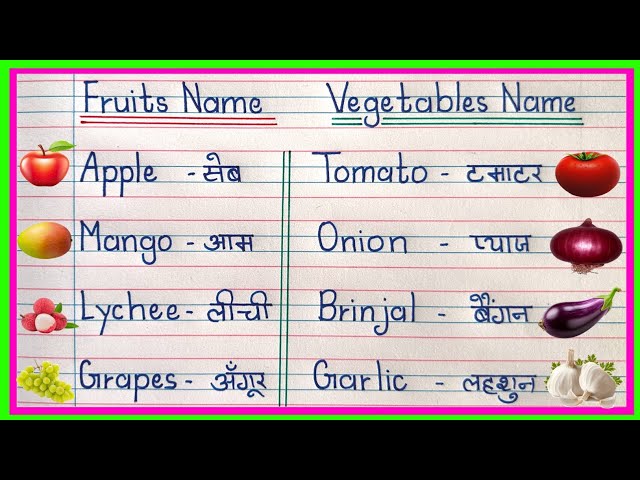 Fruits Name Vegetables Name
Apple - सेब Tomato - टमाटर
Mango - आम Onion - प्याज
Lychee - लीची Brinjal - बैंगन
Grapes - अँगूर Garlic - लहशुन